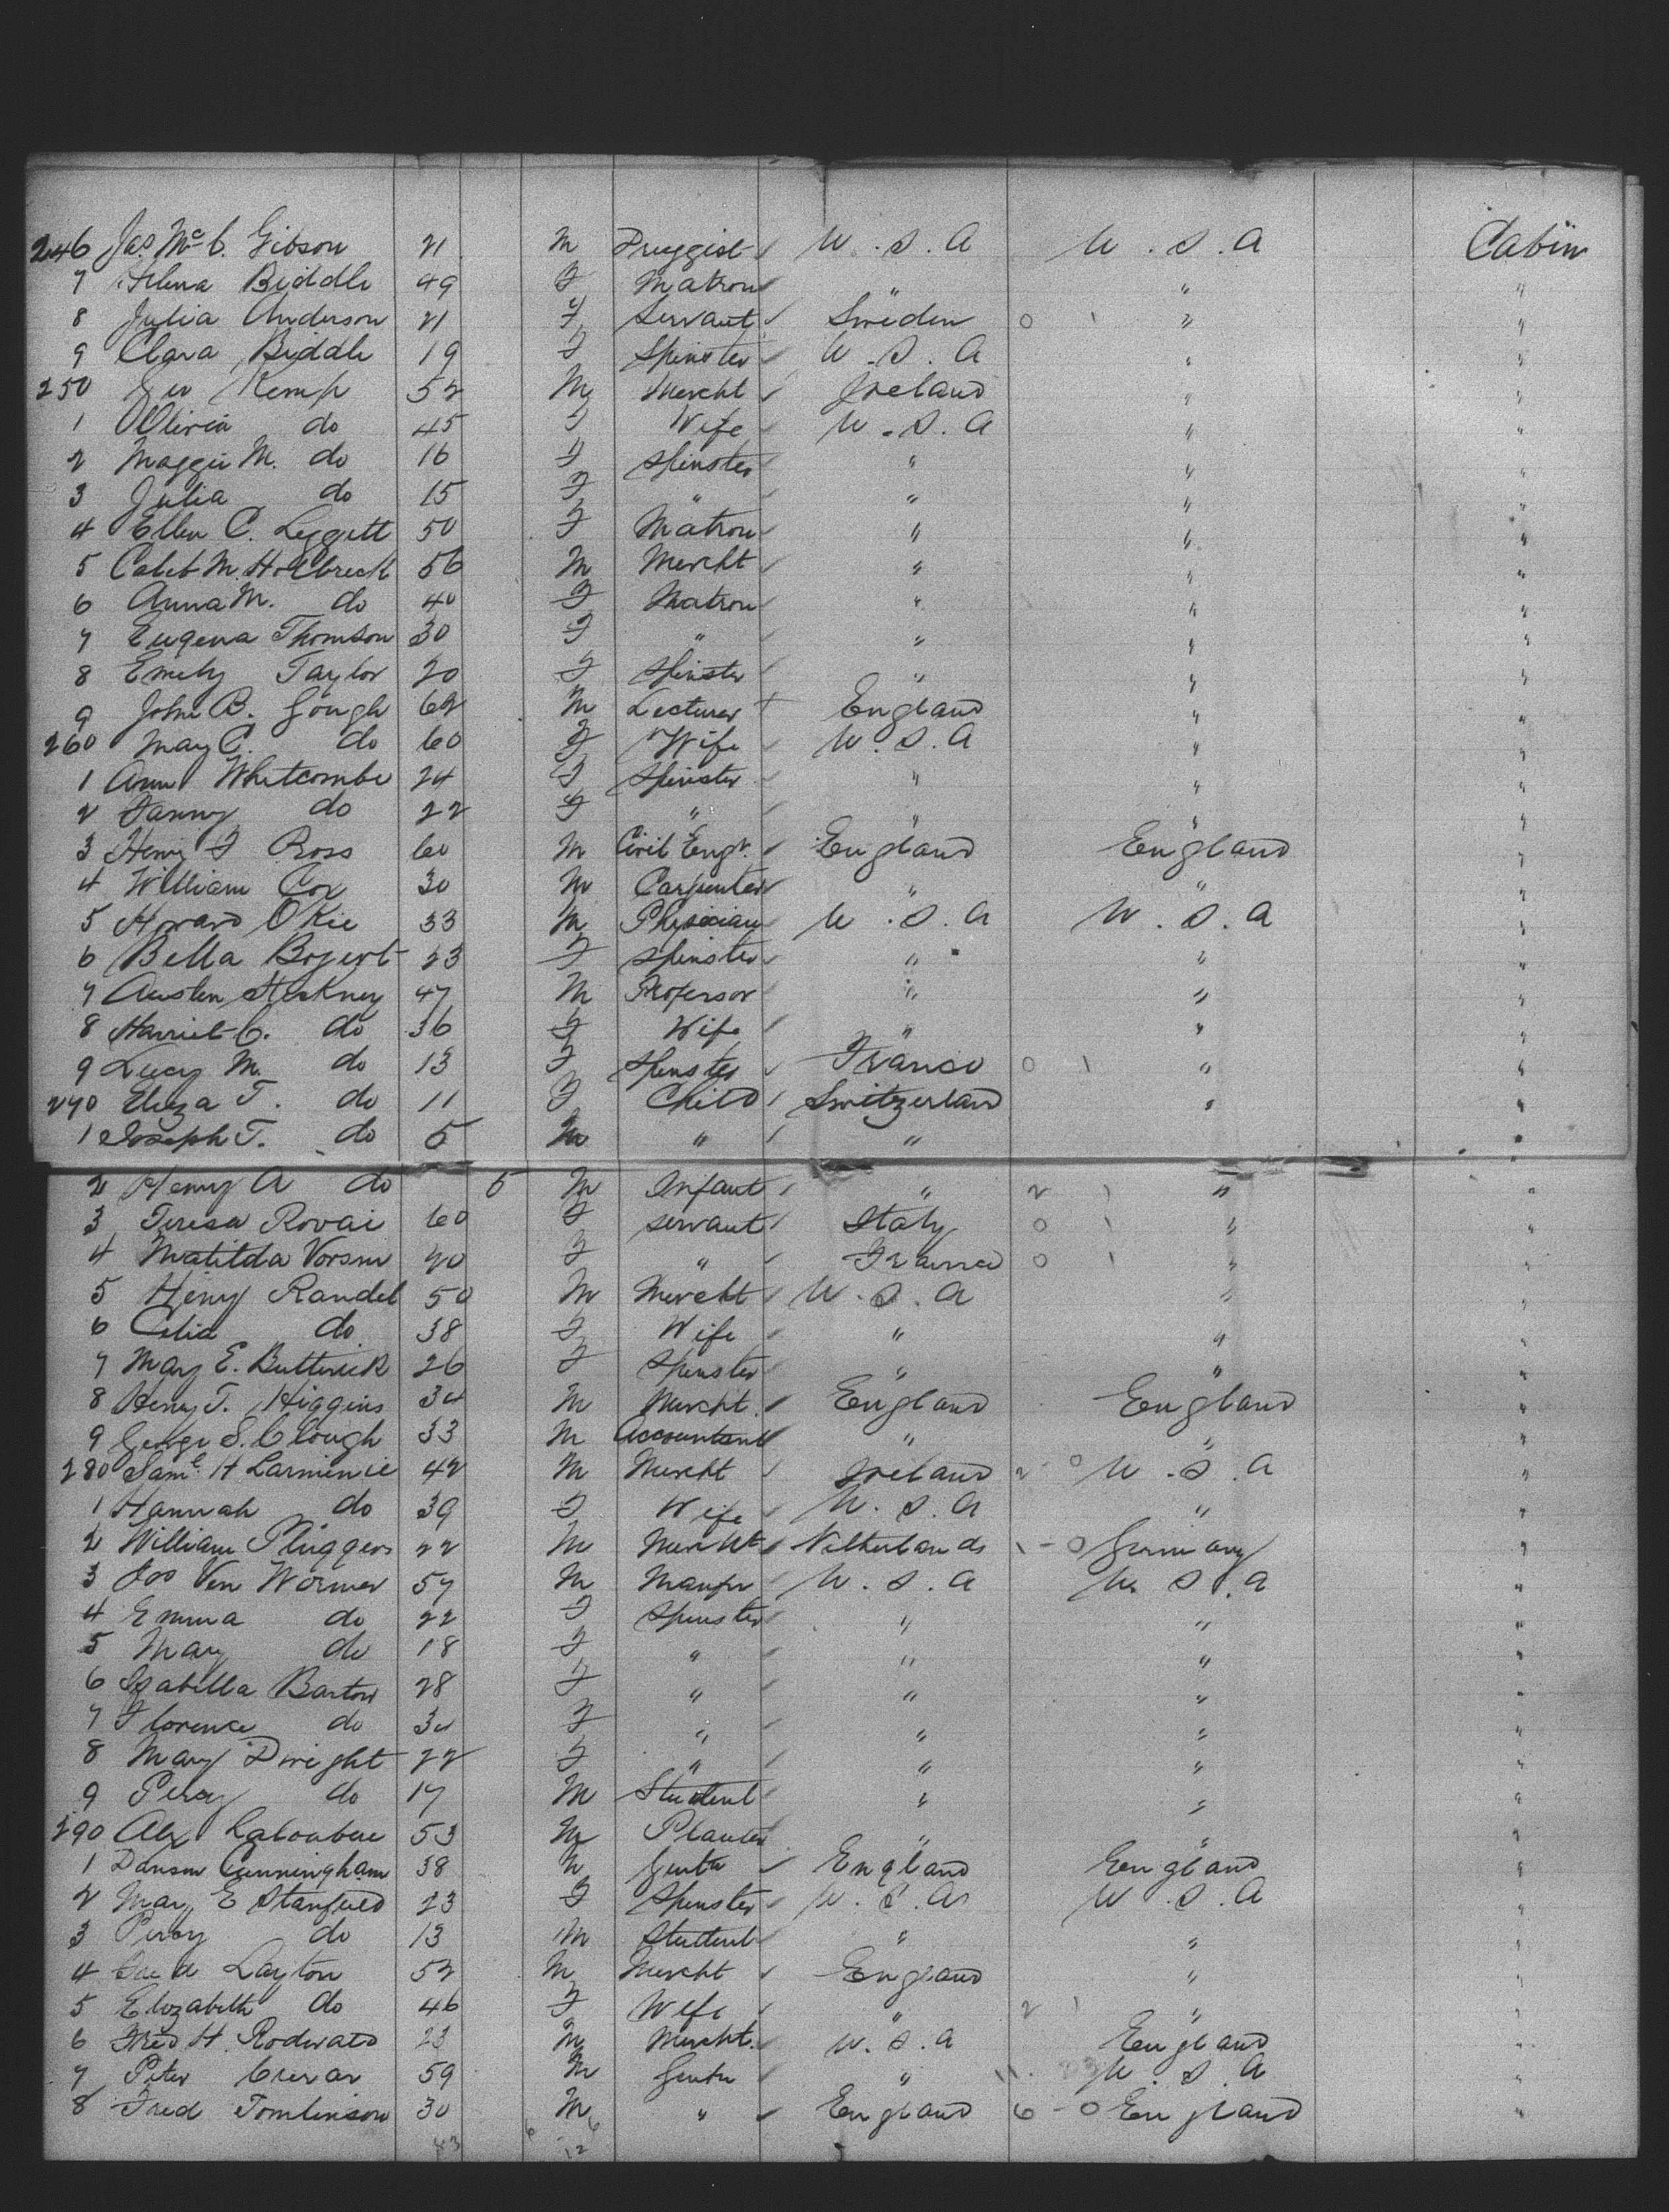 246 Jas. Mc C. Gibson 21 M Druggist U.S.A U.S.A Cabin
7 Helena Biddle 49 F Matron " " "
8 Julia Anderson 21 F Servant Sweden 0 1 " "
9 Clara Biddle 19 F Spinster U.S.A " "
250 Geo Kemp 52 M Mercht Ireland " "
1 Olivia do 45 F Wife U.S.A " "
2 Maggie M. do 16 F Spinster " " "
3 Julia do 15 F " " " "
4 Ellen C. Leggett 50 F Matron " " "
5 Caleb M. 56 M Mercht " " "
6 Anna M. do 40 F Matron " " "
7 Eugena Thomson 30 F " " " "
8 Emely Taylor 20 F Spinster " " "
9 John B. Gough 62 M Lecturer England " "
260 Mary C. do 60 F Wife U.S.A " "
1 Ann Whitcombe 24 F Spinster " " "
2 Fanny do 22 F " " " "
3 Henry F Ross 60 M Civil Engr. England England "
4 William Cox 30 M Carpenter " " "
5 Howard OKie 33 M Physician U.S.A U.S.A "
6 Bella Bogert 23 F Spinster " " "
7 Austen Stickney 47 M Professor " " "
8 Harriet C. do 36 F Wife " " "
9 Lucy M. do 13 F Spinster France 0 1 " "
270 Eliza T. do 11 F Child Switzerland " "
1 Joseph T. do 5 M " " "
2 Henry A do 5 M Infant " 2 1 " "
3 Teresa Rovai 60 F Servant Italy 0 1 " "
4 Matilda 20 F " France 0 1 " "
5 Henry Randel 50 M Mercht U.S.A " "
6 Celia do 38 F Wife " " "
7 Mary E. Butterick 26 F Spinster " " "
8 Henry T. Higgins 34 M Mercht. England England "
9 George S. Clough 33 M Accountant " " "
280 Saml. H Larminie 42 M Mercht Ireland 2 - 0 U.S.A "
1 Hannah do 39 F Wife U.S.A " "
2 William Pluggers 22 M Mercht Netherlands 1 - 0 Germany "
3 Jas Ven Wormer 57 M Manfr U.S.A U.S.A "
4 Emma do 22 F Spinster " " "
5 May do 18 F " " " "
6 Isabella Bartow 28 F " " " "
7 Florence do 30 F " " " "
8 Mary Dwight 22 F " " " "
9 Percy do 17 M Student " " "
290 Alx 53 M Planter " " "
1 Cunningham 38 M Gentn England England "
2 Mary E Stanfield 23 F Spinster U.S.A U.S.A "
3 Percy do 13 M Student " " "
4 Layton 52 M Mercht England " "
5 Elizabeth do 46 F Wife " 2 1 " "
6 Fred H. Rodwald 23 M Mercht. U.S.A England "
7 Peter 59 M Gentn " 11 U.S.A "
8 Fred Tomlinson 30 M " England 6 - 0 England "
6 12 6